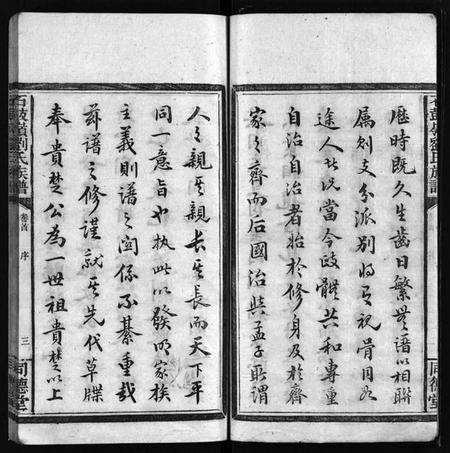 石鼓嶺劉氏族譜
歷時既久生齒日繁無譜以相聯
屬則支分派別將有視骨肉如
途人者況當今政體共和專重
自治自治者始於修身及於齊
家家齊而后國治與孟子所謂
同德堂
人人親其親長其長而天下平
同一意旨也執此以發明家族
主義則譜之關係不綦重哉
茲譜之修謹就其先代草牒
奉貴楚公為一世祖貴楚以上
石鼓嶺劉氏族譜
卷首
序
三
同德堂